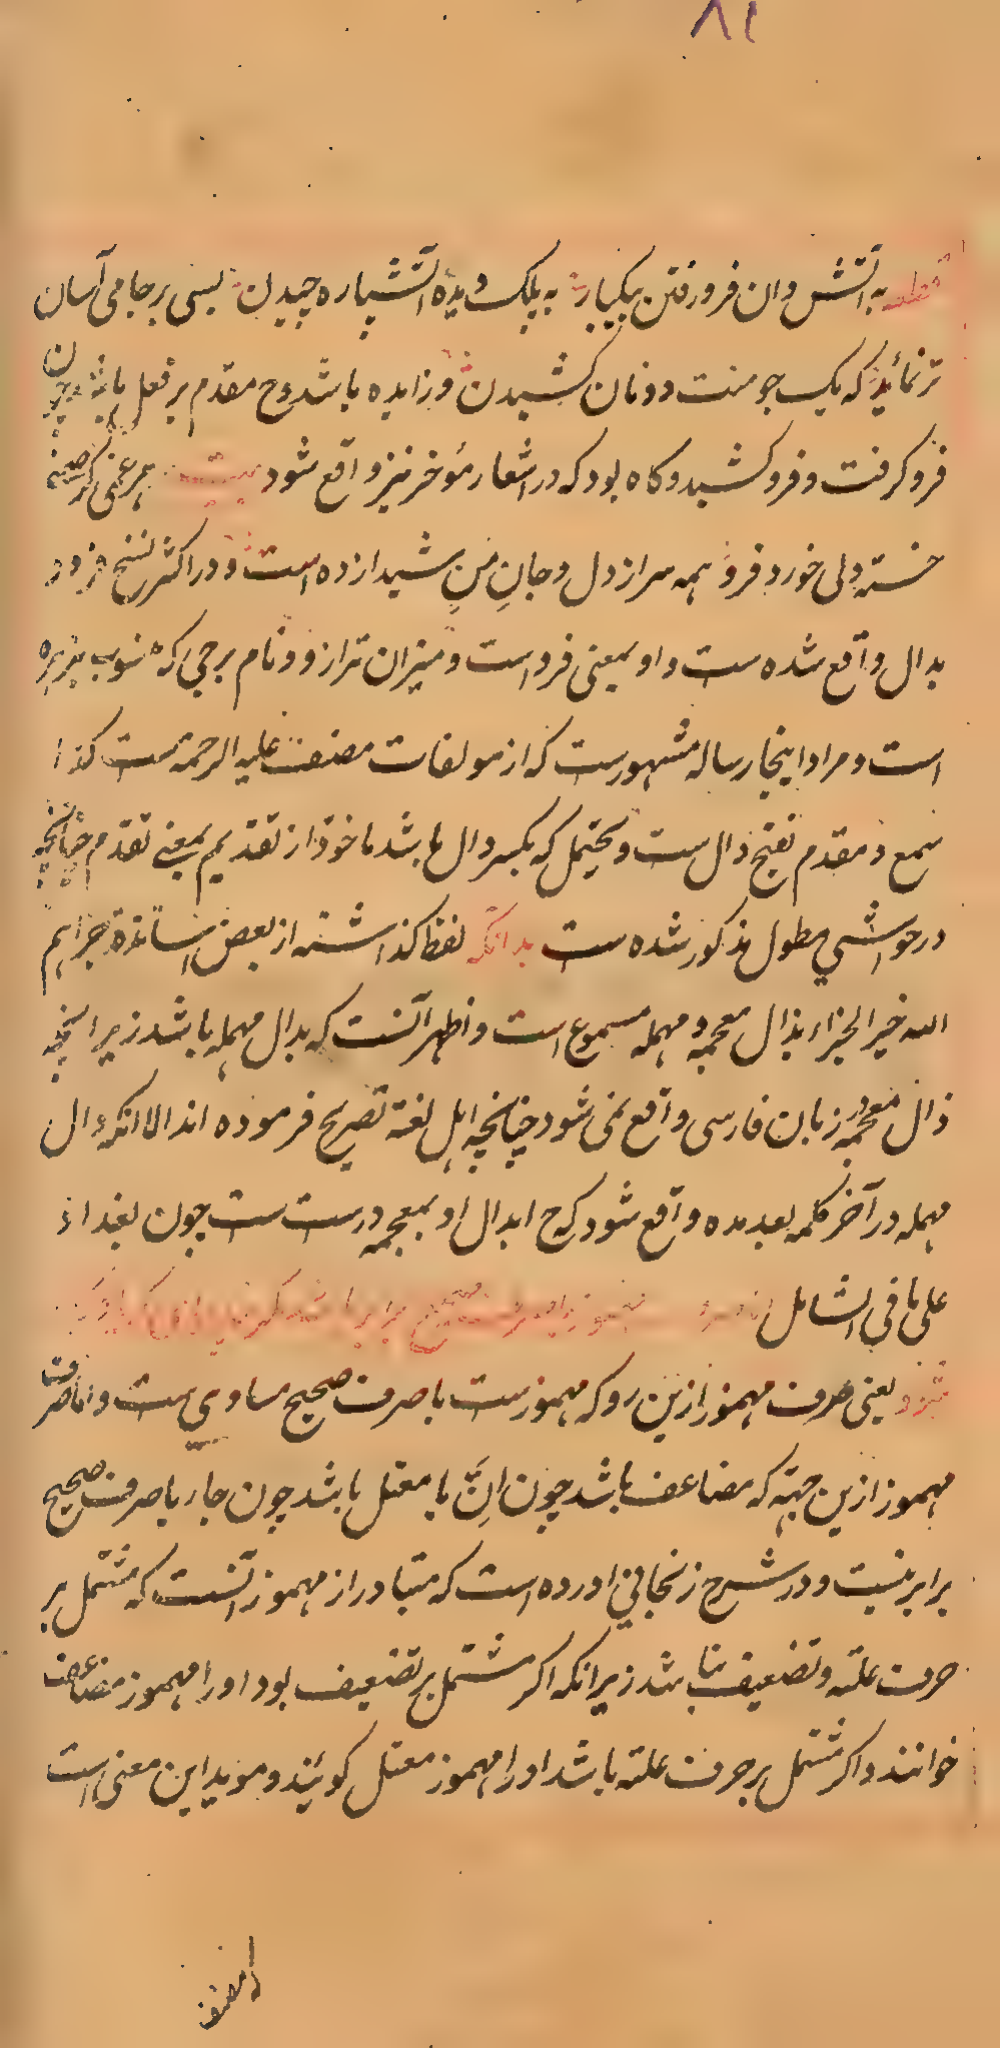 ۸۱
قطعه به آتش وان فرو رفتن یکبار به پلک دیده آتشپاره چیدن بسی بر جامی آسان
تر نماید که یک جو منت دونان کشیدن و زایده باشد وح مقدم بر فعل باشد چون
فرو کرفت و فرو کشید و کاه بود که در اشعار مؤخر نیز واقع شود بیت هر غمی کز
خسته دلی خورد فرو همه سر از دل و جان من شیدا زده است و در اکثر نسخ فرود
بدال واقع شده ست و او بمعنی فرو است و میزان ترازو و نام برجی که منسوب بزهره
است و مراد اینجا رساله مشهورست که از مولفات مصنف علیه الرحمة ست کذا
سمع و مقدم بفتح دال ست و یحتمل که بکسر دال باشد ماخوذ از تقدیم بمعنی تقدم چنانچه
در حواشی مطول مذکور شده ست بدانکه لفظ کذاشته از بعض اساتذة جزاهم
الله خیر الجزاء بذال معجمه و مهمله مسموع است و اظهر آنست که بدال مهمله باشد زیرا چه
ذال معجمه در زبان فارسی واقع نمی شود چنانچه اهل لغة تصریح فرموده اند الا انکه دال
مهمله در آخر کلمه بعد مده واقع شود که ح ابدال او بمعجمه درست ست چون بغداذ
علی ما فی الشامل
یعنی صرف مهموز ازین رو که مهموزست با صرف صحیح مساوی ست و اما صرف
مهموز ازین جهة که مضاعف باشد چون انّ یا معتل باشد چون جاء با صرف صحیح
برابر نیست و در شرح زنجانی اورده است که متبادر از مهموز آنست که مشتمل بر
حرف علته و تضعیف نباشد زیرانکه اکر مشتمل بر تضعیف بود او را مهموز مضاعف
خوانند و اکر مشتمل بر حرف علته باشد او را مهموز معتل کویند و موید این معنی است